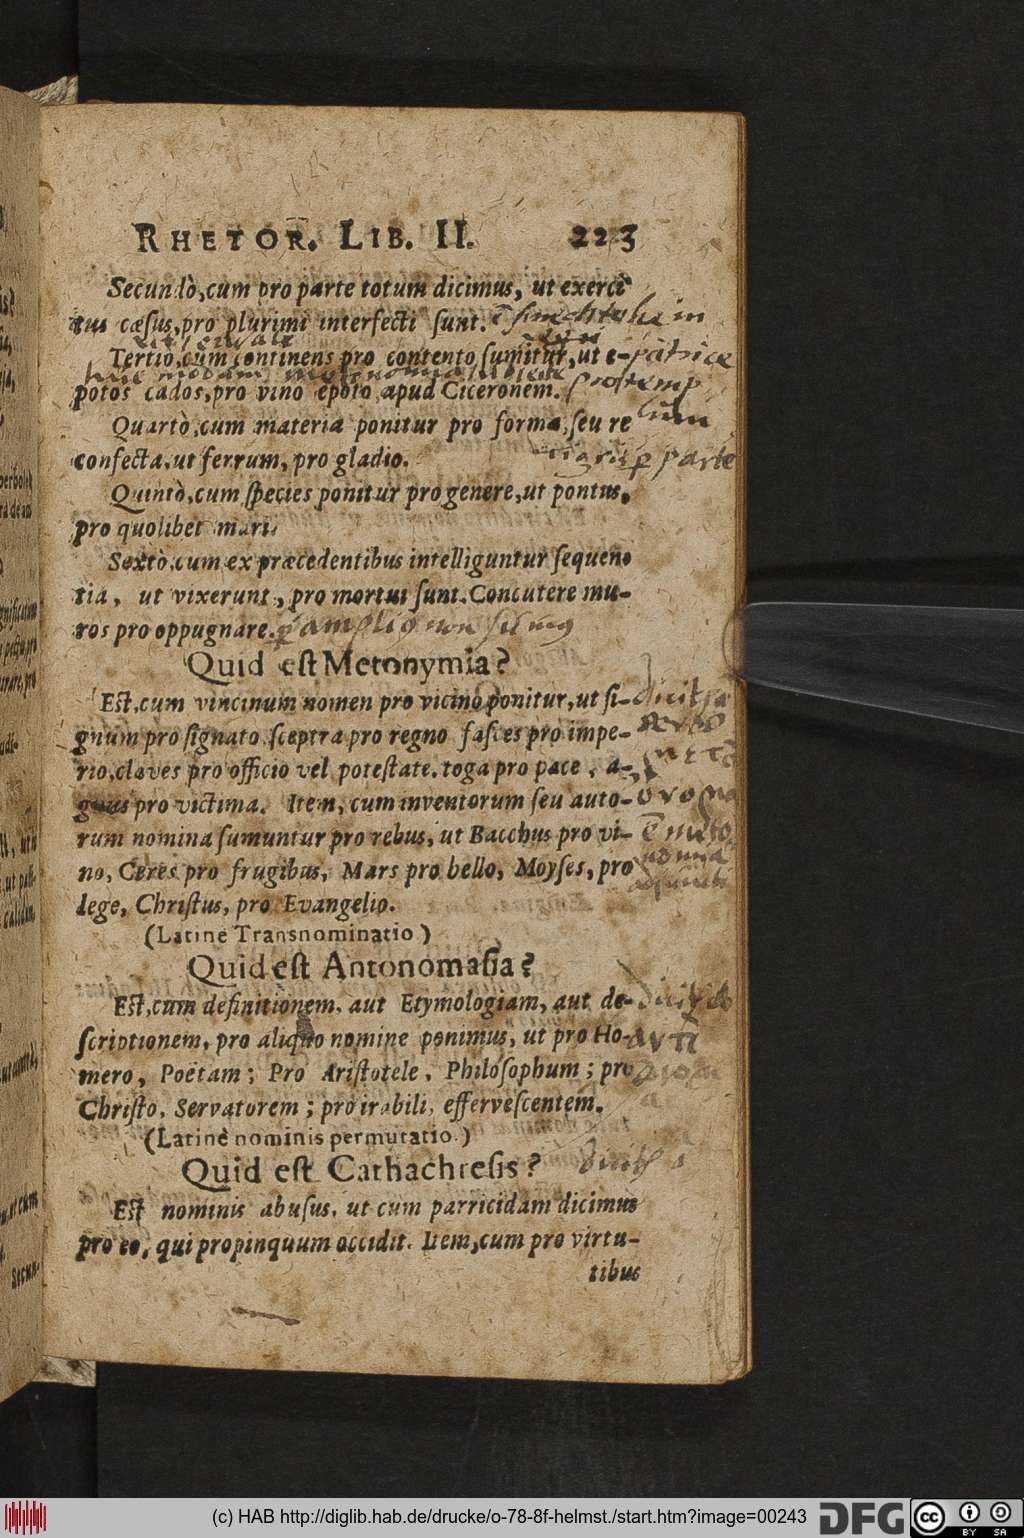 RHETOR. LIB. II. 223
Secundò, cum pro parte totum dicimus, ut exerci
tus cæsus, pro plurimi interfecti sunt.
Tertiò, cum continens pro contento sumitur, ut e-
potos cados, pro vino epoto apud Ciceronem.
Quartò, cum materia ponitur pro forma, seu re
confecta, ut ferrum, pro gladio.
Quintò, cum species ponitur pro genere, ut pontus,
pro quolibet mari.
Sextò, cum ex præcedentibus intelliguntur sequen-
tia, ut vixerunt, pro mortui sunt. Concutere mu-
ros pro oppugnare.
Quid est Metonymia?
Est, cum vincinum nomen pro vicino ponitur, ut si-
gnum pro signato. sceptra pro regno fasces pro impe-
rio, claves pro officio vel potestate. toga pro pace, a-
gnus pro victima. Item, cum inventorum seu auto-
rum nomina sumuntur pro rebus, ut Bacchus pro vi-
no, Ceres pro frugibus, Mars pro bello, Moyses, pro
lege, Christus, pro Evangelio.
(Latinè Transnominatio)
Quid est Antonomasia?
Est, cum definitionem, aut Etymologiam, aut de-
scriptionem, pro aliquo nomine ponimus, ut pro Ho-
mero, Poëtam; Pro Aristotele, Philosophum; pro
Christo, Servatorem; pro irabili, effervescentem.
(Latinè nominis permutatio.)
Quid est Cathachresis?
Est nominis abusus, ut cum parricidam dicimus
pro eo, qui propinquum occidit. Item, cum pro virtu-
tibus
(c) HAB http://diglib.hab.de/drucke/o-78-8f-helmst./start.htm?image=00243
DFG
cc BY SA